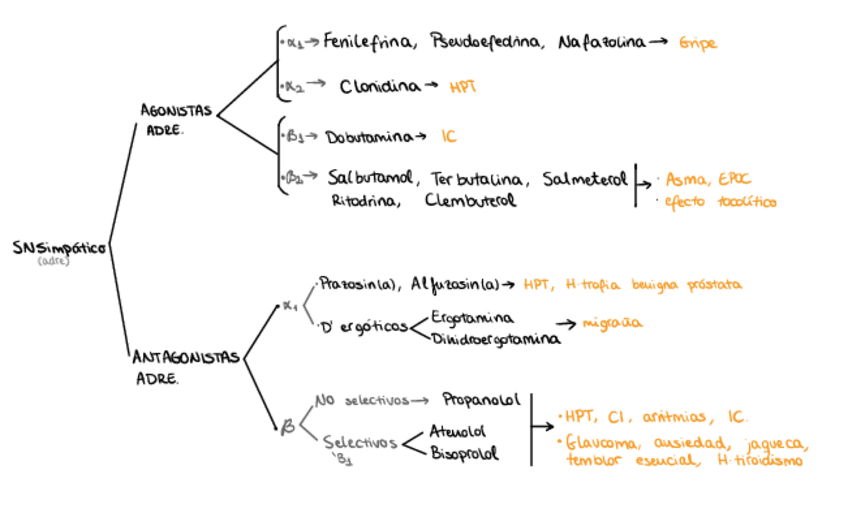 ·α₁→ Fenilefrina, Pseudoefedrina, Nafazolina → Gripe
·α₂→ Clonidina → HPT
AGONISTAS
ADRE.
·β₁→ Dobutamina → IC
·β₂→ Salbutamol, Terbutalina, Salmeterol → · Asma, EPOC
Ritodrina, Clembuterol · efecto tocolítico
SNSimpático
(adre)
α₁ ·Prazosin(a), Alfuzosin(a) → HPT, H·trofia benigna próstata
·D' ergóticos Ergotamina → migraña
Dihidroergotamina
ANTAGONISTAS
ADRE.
β No selectivos → Propanolol
Selectivos Atenolol
β₁ Bisoprolol
·HPT, CI, arritmias, IC.
·Glaucoma, ansiedad, jaqueca,
temblor esencial, H·tiroidismo